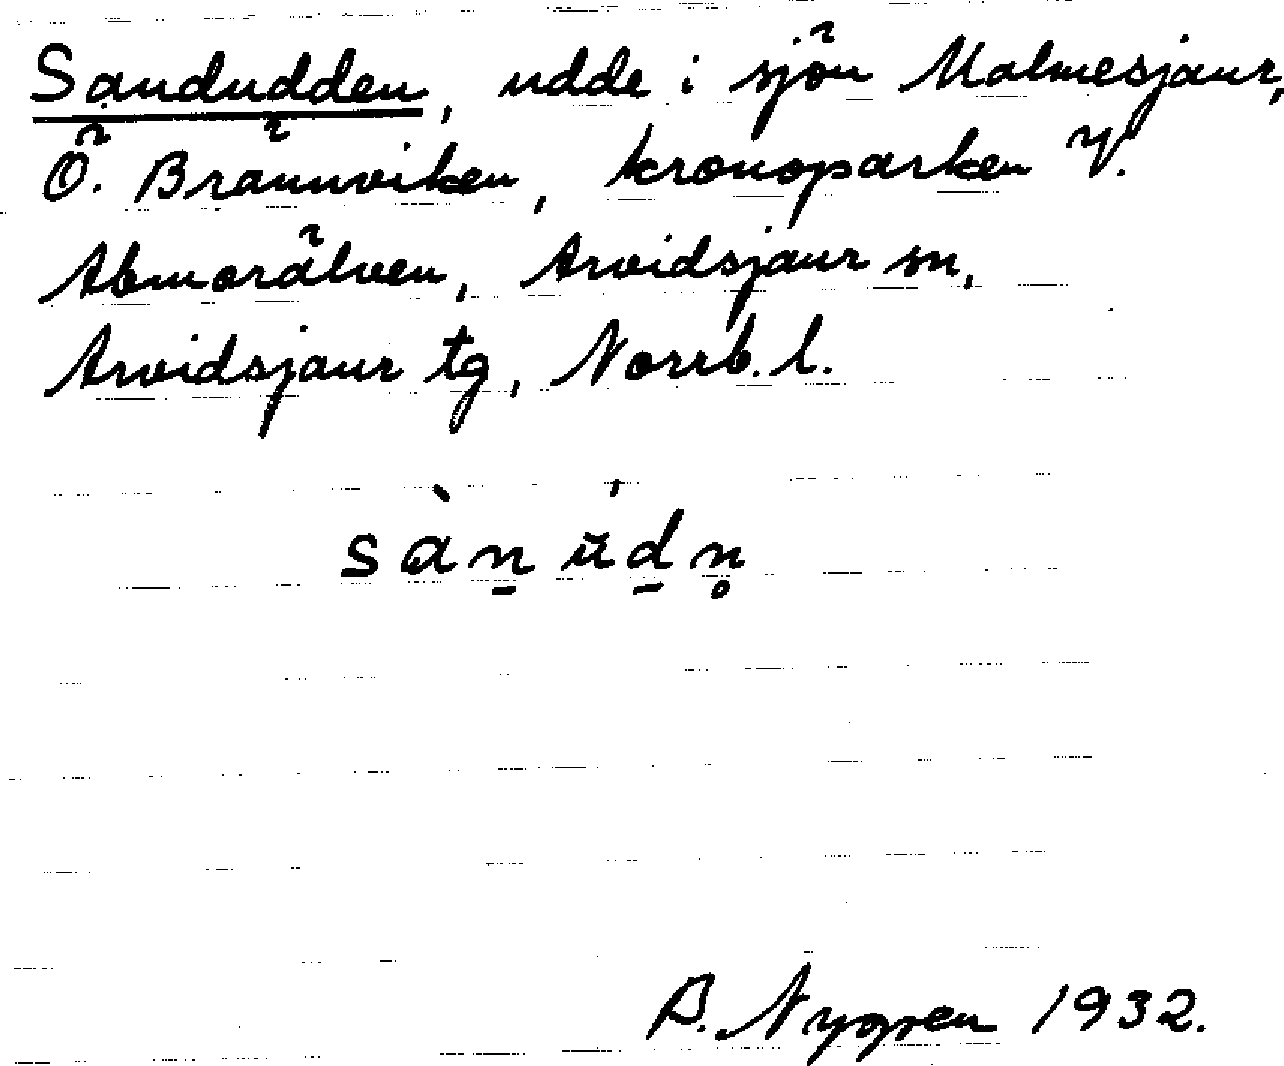 Sandudden, udde i sjön Malmesjaur,
Ö. Brännviken, kronoparken V.
Abmorälven, Arvidsjaur sn,
Arvidsjaur tg, Norrb. l.
sàn̠ u̍d̠n̥
Nygren 1932.